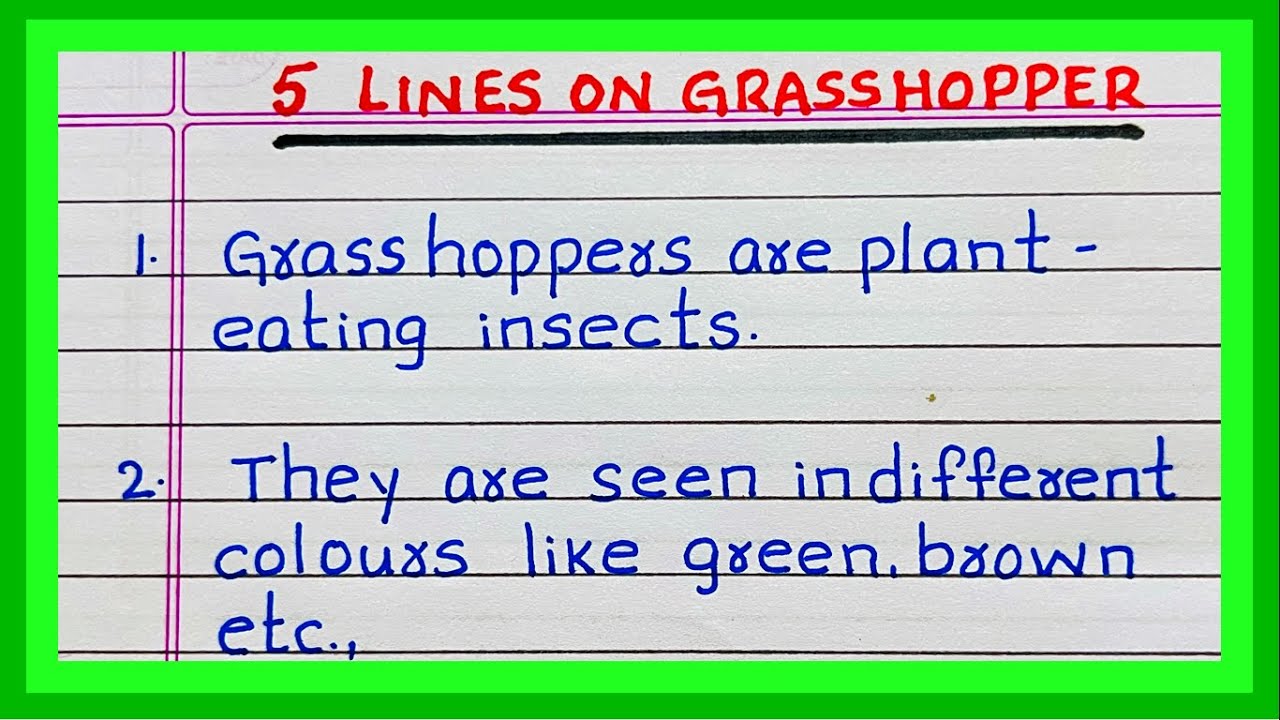 5 LINES ON GRASSHOPPER
1. Grasshoppers are plant-
eating insects.
2. They are seen in different
colours like green, brown
etc.,